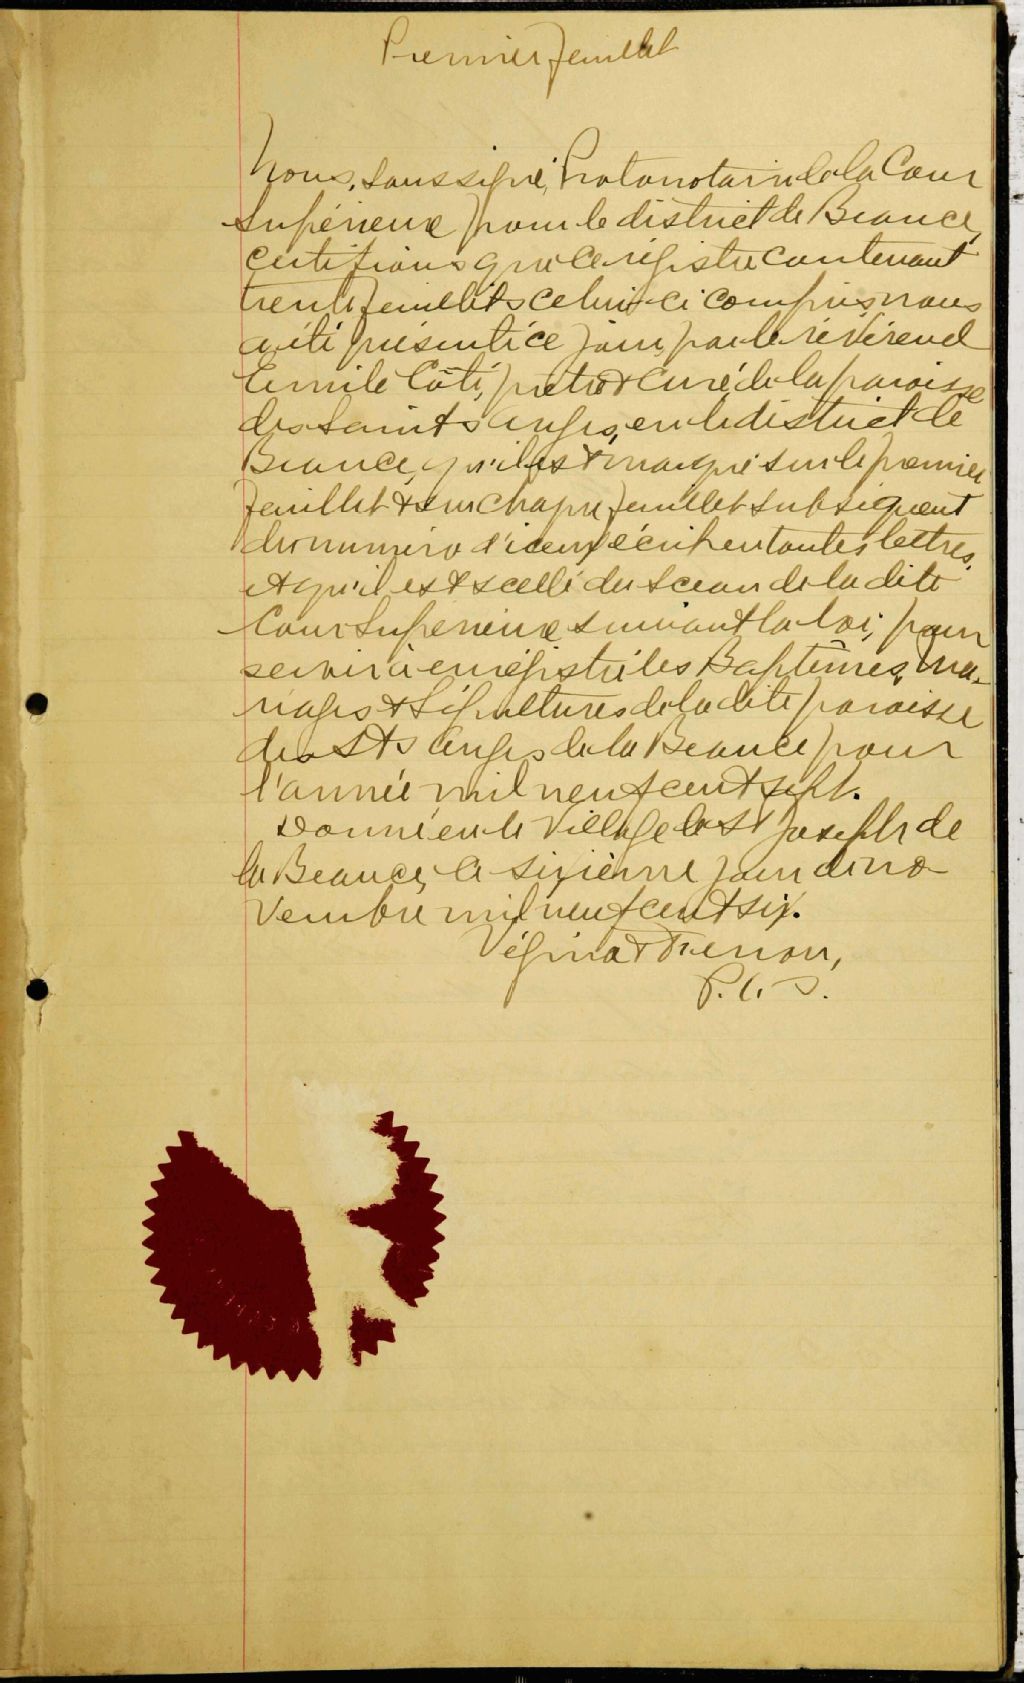 Premier feuillet
Nous, soussigné, Protonotaire de la Cour
Supérieure pour le district de Beauce,
certifions que ce régistre contenant
trente feuillets celui-ci compris, nous
a été présenté ce jour, par le révérend
Emile Côté, prêtre & Curé de la paroisse
des Saints Anges, en le district de
Beauce, qu'il est marqué sur le premier
feuillet & sur chaque feuillet subséquent
du numéro d'icelui écrit en toutes lettres,
et qu'il est scellé du Sceau de la dite
Cour Supérieure suivant la loi, pour
servir à enrégistrer les Baptêmes, Ma-
riages & Sépultures de la dite paroisse
des Sts Anges de la Beauce pour
l'année mil neuf cent sept.
Donné en le Village de St Joseph de
la Beauce, le sixième jour de no-
vembre mil neuf cent six.
Vézina &
P. C. S.